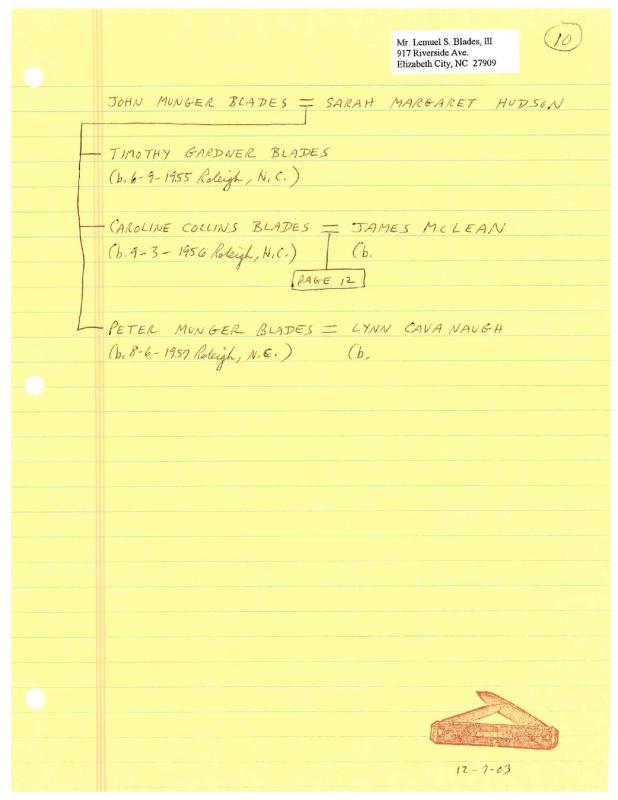 Mr. Lemuel S. Blades, III
917 Riverside Ave.
Elizabeth City, NC 27909
10
JOHN MUNGER BLADES = SARAH MARGARET HUDSON
TIMOTHY GARDNER BLADES
(b. 6-9-1955 Raleigh, N.C.)
CAROLINE COLLINS BLADES = JAMES MCLEAN
(b. 9-3-1956 Raleigh, N.C.) (b.
PAGE 12
PETER MUNGER BLADES = LYNN CAVANAUGH
(b. 8-6-1957 Raleigh, N.C.) (b.
12-7-03